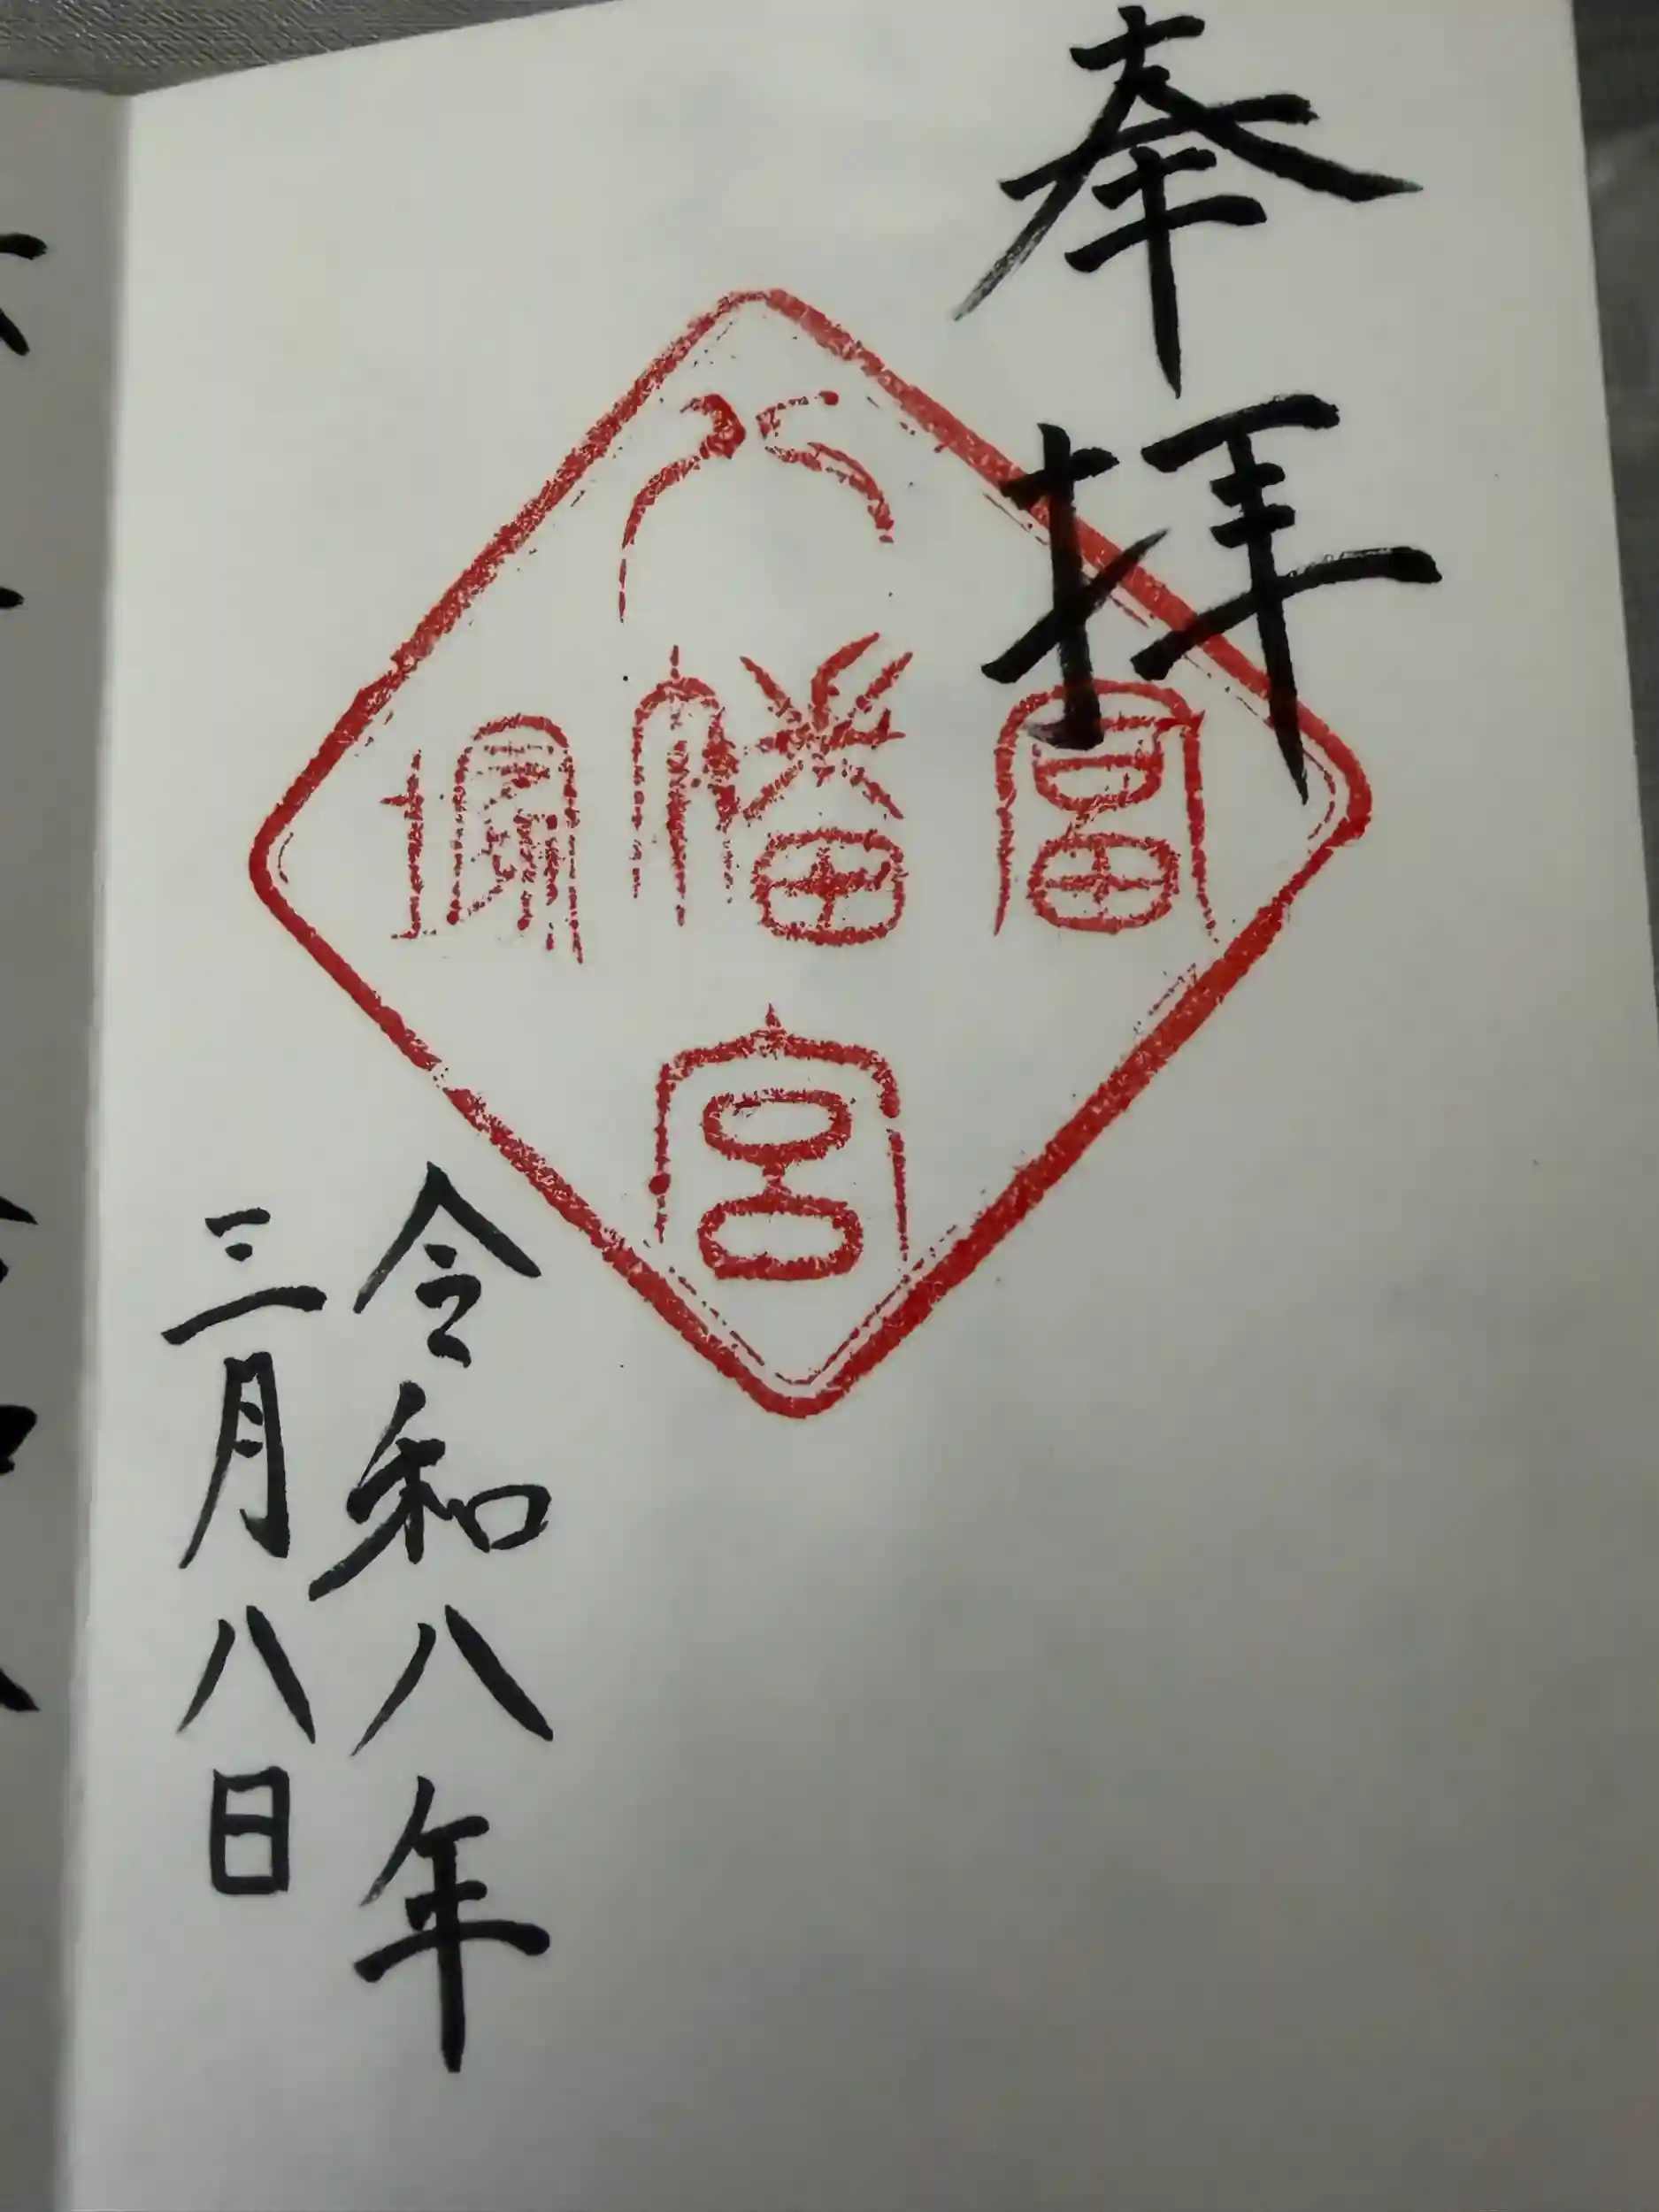 奉拝
富塚八幡宮
令和八年
三月八日